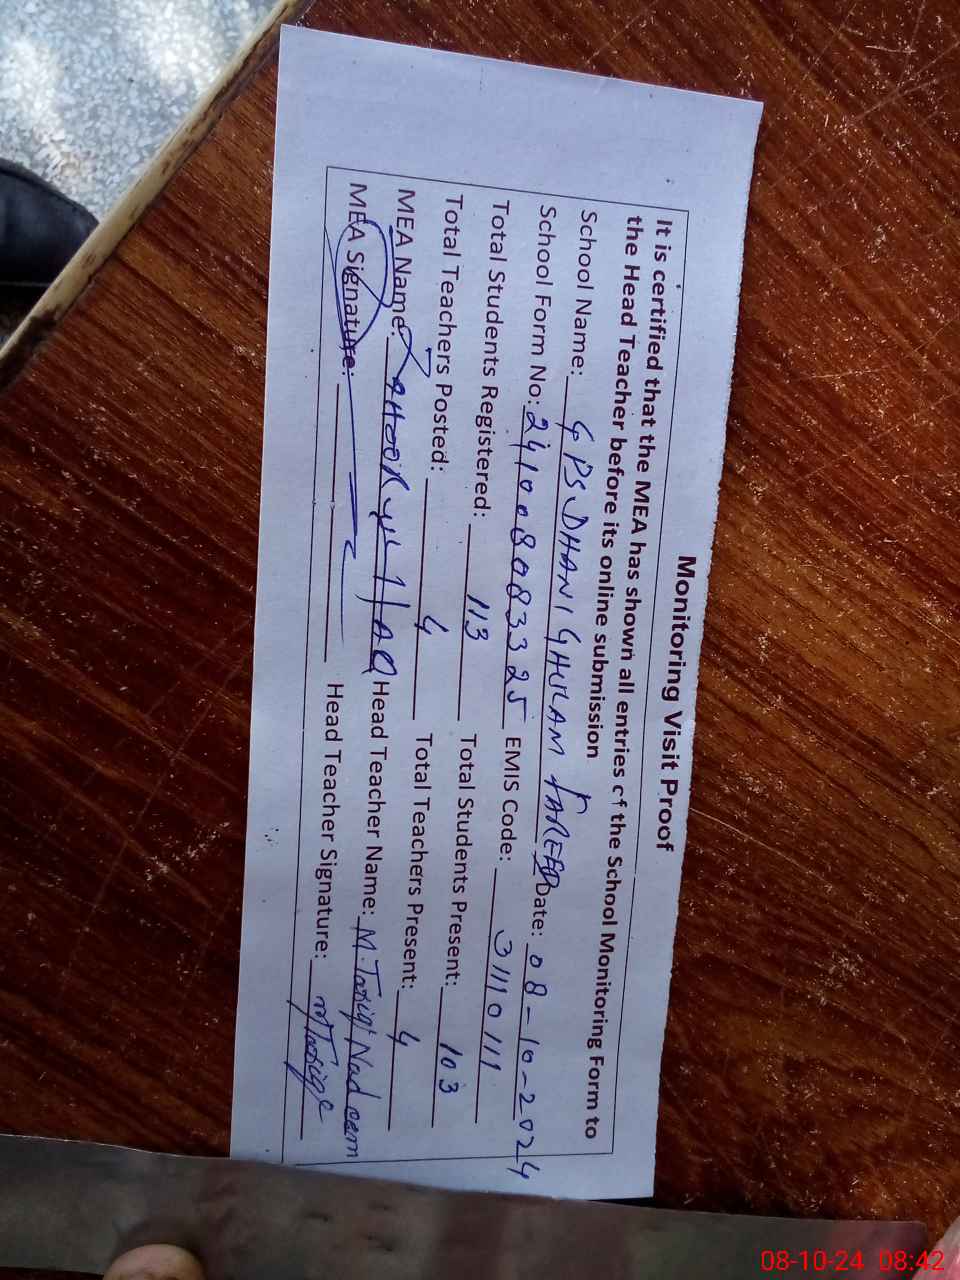 Monitoring Visit Proof
It is certified that the MEA has shown all entries of the School Monitoring Form to
the Head Teacher before its online submission
School Name: GPS DHANI GHULAM FAREED Date: 08-10-2024
School Form No: 241008083325 EMIS Code: 31110111
Total Students Registered: 113 Total Students Present: 103
Total Teachers Posted: 4 Total Teachers Present: 4
MEA Name: Head Teacher Name: M. Tariq Nadeem
MEA Signature: Head Teacher Signature: MTariq
08-10-24 08:42